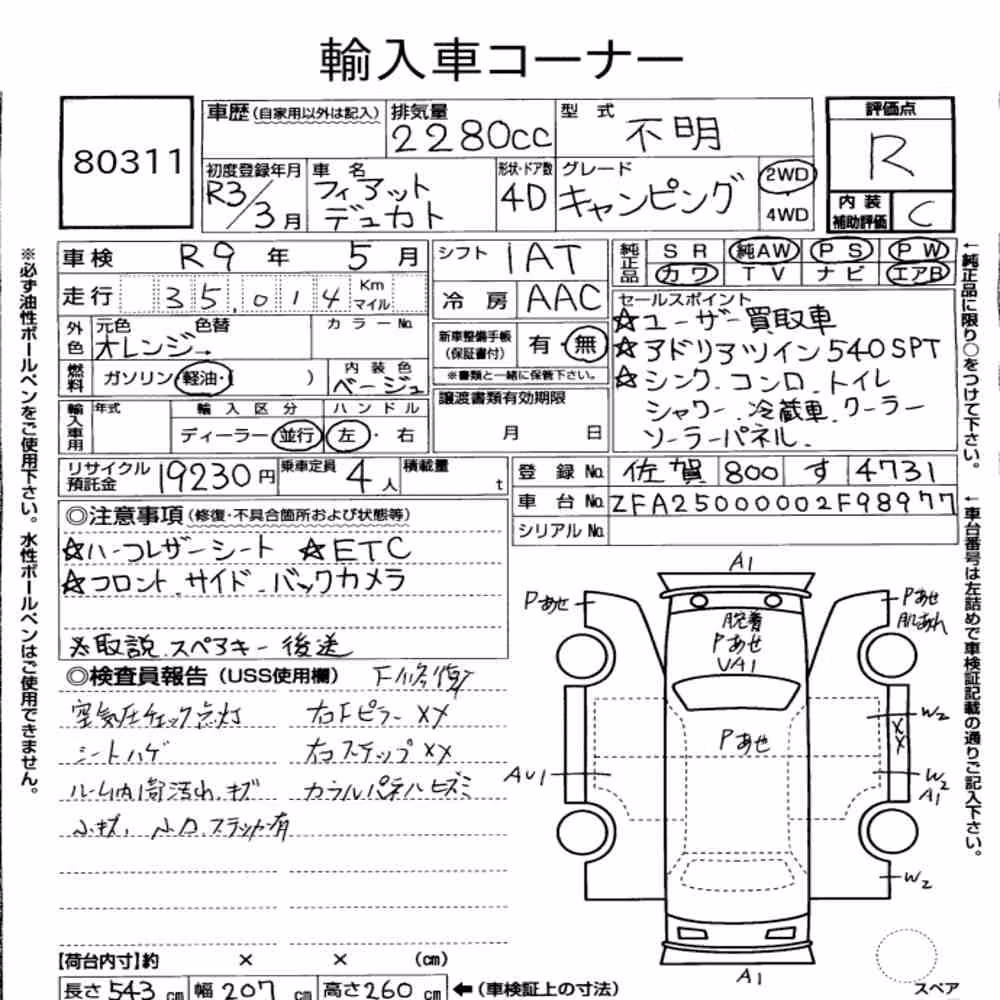 輸入車コーナー
80311
車歴(自家用以外は記入)
排気量 2280cc
型式 不明
評価点 R
初度登録年月 R3/3月
車名 フィアット デュカト
形状・ドア数 4D
グレード キャンピング
2WD・4WD
内装補助評価 C
車検 R9年 5月
シフト IAT
純正品 SR 純AW PS PW
カワ TV ナビ エアB
走行 35,014 Km マイル
冷房 AAC
セールスポイント
☆ユーザー買取車
☆アドリアツイン540SPT
☆シンク.コンロ.トイレ
シャワー.冷蔵車.クーラー
ソーラーパネル.
外色 元色 色替 オレンジ→
カラーNo.
新車整備手帳(保証書付) 有・無
※書類と一緒に保管下さい。
燃料 ガソリン・軽油・( )
内装色 ベージュ
譲渡書類有効期限 月 日
輸入車用 年式
輸入区分 ディーラー・並行
ハンドル 左・右
リサイクル預託金 19230円
乗車定員 4人
積載量 t
登録No. 佐賀 800 す 4731
車台No. ZFA25000002F98977
シリアルNo.
◎注意事項(修復・不具合箇所および状態等)
☆ハーフレザーシート ☆ETC
☆フロント.サイド.バックカメラ
※取説.スペアキー後送
◎検査員報告(USS使用欄)
空気圧チェック点灯 右Fピラー XX
シートハゲ 右ステップ XX
ルーム内部汚れ.キズ
A1
Pあせ
Pあせ
肌あれ
脱着
Pあせ
UA1
Pあせ
W2
XX
AU1
W2
A1
W2
A1
スペア
【荷台内寸】約 × × (cm)
長さ 543 cm 幅 207 cm 高さ 260 cm ←(車検証上の寸法)
※必ず油性ボールペンをご使用下さい。水性ボールペンはご使用できません。
←純正品に限り○をつけて下さい。
←車台番号は左詰めで車検証記載の通りご記入下さい。